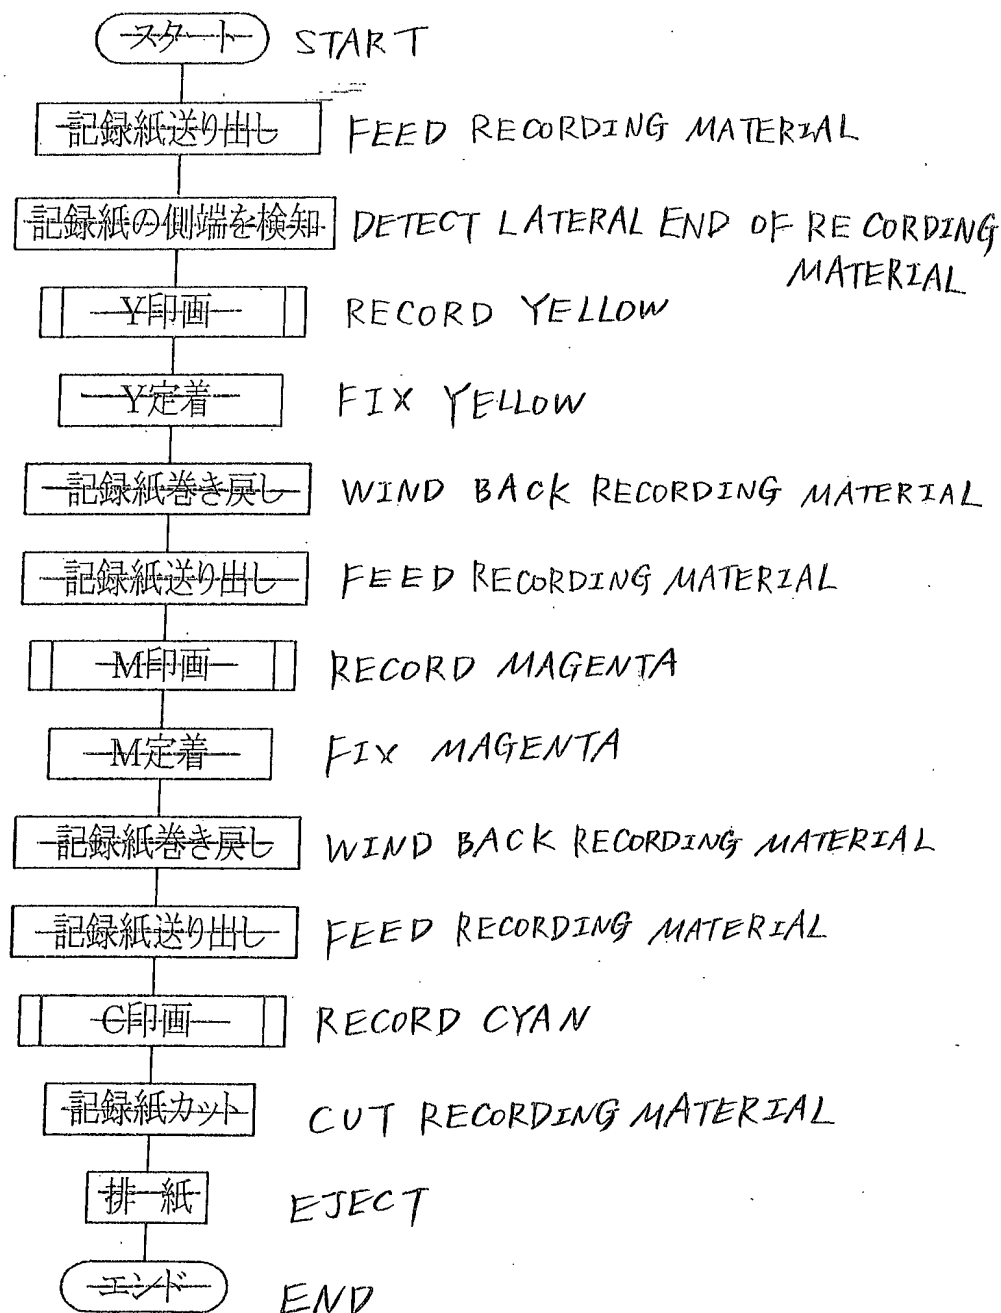 スタート START
記録紙送り出し FEED RECORDING MATERIAL
記録紙の側端を検知 DETECT LATERAL END OF RECORDING
MATERIAL
Y印画 RECORD YELLOW
Y定着 FIX YELLOW
記録紙巻き戻し WIND BACK RECORDING MATERIAL
記録紙送り出し FEED RECORDING MATERIAL
M印画 RECORD MAGENTA
M定着 FIX MAGENTA
記録紙巻き戻し WIND BACK RECORDING MATERIAL
記録紙送り出し FEED RECORDING MATERIAL
C印画 RECORD CYAN
記録紙カット CUT RECORDING MATERIAL
排紙 EJECT
エンド END